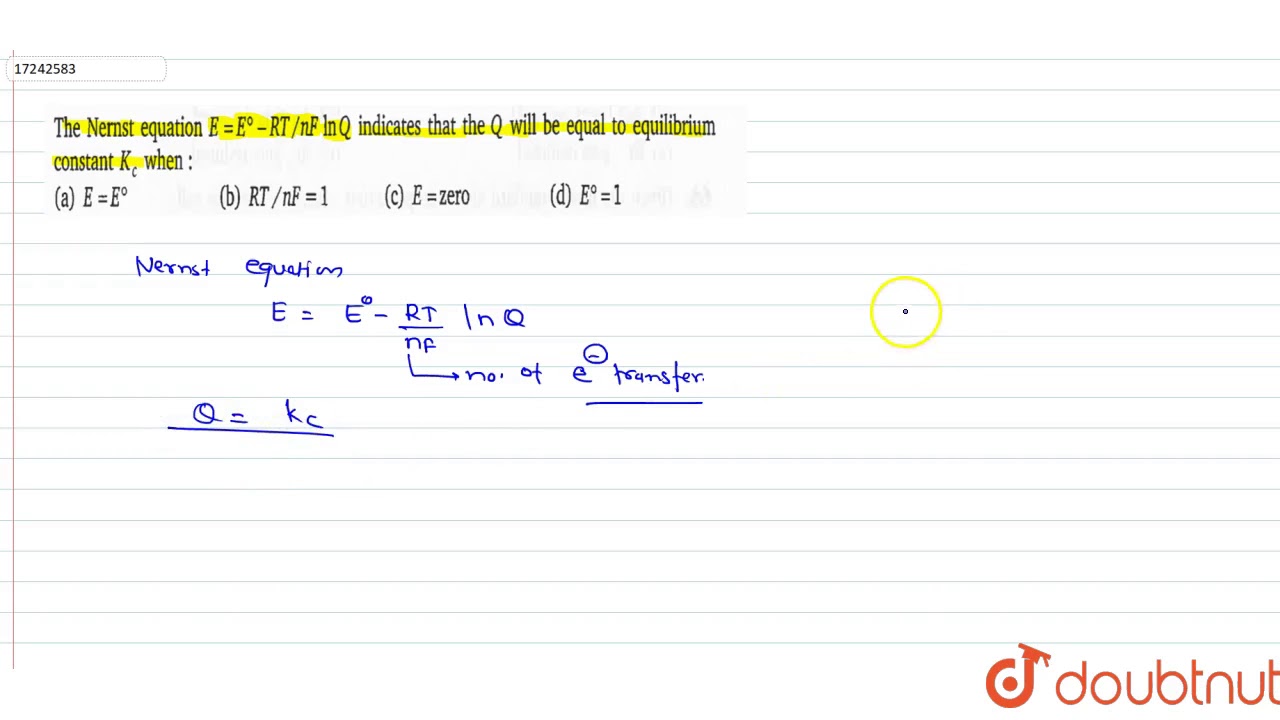 17242583
The Nernst equation E = E° – RT/nF ln Q indicates that the Q will be equal to equilibrium
constant Kc when :
(a) E = E° (b) RT/nF = 1 (c) E = zero (d) E° = 1
Nernst equation
E = E° - RT/nF ln Q
no. of e⊖ transfer.
Q = kc
doubtnut